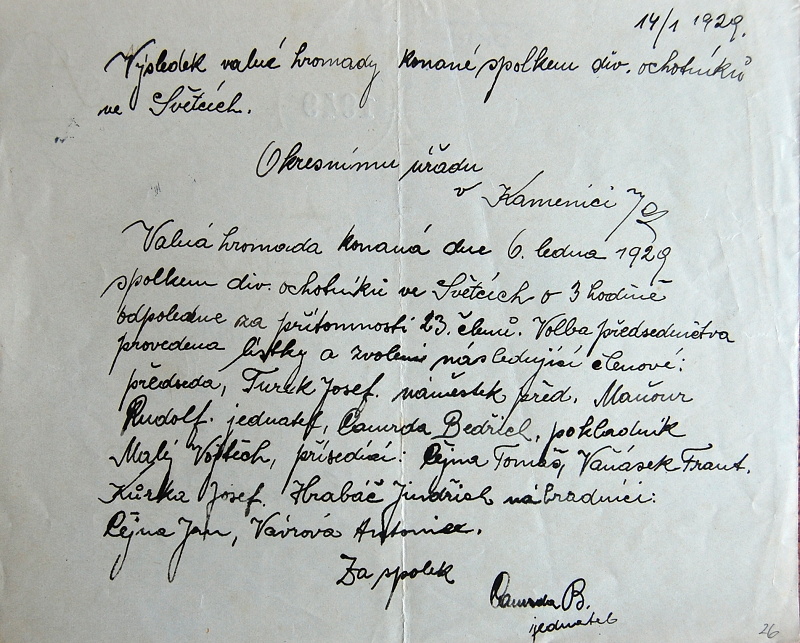 14/1 1929.
Výsledek valné hromady konané spolkem div. ochotníků
ve Světcích.
Okresnímu úřadu
v Kamenici
Valná hromada konaná dne 6. ledna 1929
spolkem div. ochotníků ve Světcích o 3 hodině
odpoledne za přítomnosti 23. členů. Volba předsednictva
provedena lístky a zvoleni následující členové:
předseda, Turek Josef. náměstek před. Maňour
Rudolf. jednatel, Camrda Bedřich, pokladník
Malý Vojtěch, přísedící: Čejna Tomáš, Vaňásek Frant.
Kůrka Josef. Hrabáč Jindřich náhradníci:
Čejna Jan, Vávrová Antonie.
Za spolek
Camrda B.
jednatel
26